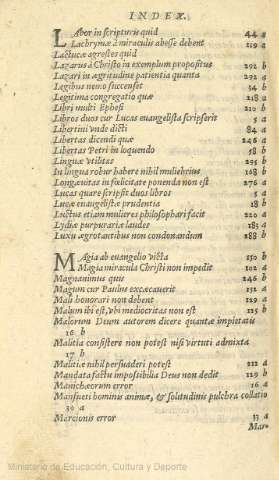 INDEX.
LAbor in scripturis quid 44 a
Lachrymæ à miraculis abesse debent 129 a
Lactucæ agrestes quid
Lazarus à Christo in exemplum propositus 292 b
Lazari in ægritudine patientia quanta 292 a
Legibus nemo succenset 54 b
Legitima congregatio quæ 218 a
Libri multi Ephesi 210 b
Libros duos cur Lucas euangelista scripserit 5 a
Libertini vnde dicti 84 a
Libertas dicendi quæ 246 a
Libertas Petri in loquendo 58 b
Linguæ vtilitas 295 b
In lingua robur habere nihil muliebrius 168 b
Longæuitas in fœlicitate ponenda non est 276 a
Lucas quare scripsit duos libros 5 a
Lucæ euangelistæ prudentia 18 b
Luctus etiam mulieres philosophari facit 220 a
Lydiæ purpurariæ laudes 183 a
Luxu ægrotantibus non condonandum 288 b
MAgia ab euangelio victa 150 b
Magia miracula Christi non impedit 102 a
Magnanimus quis 246 b
Magum cur Paulus excæcauerit 151 a
Mali honorari non debent 129 a
Malum ibi est, vbi mediocritas non est 125 b
Malorum Deum autorem dicere quantæ impietatis
16 b
Malitia consistere non potest nisi virtuti admixta
17 b
Malitiæ nihil persuaderi potest 212 a
Mandata factu impossibilia Deus non dedit 129 b
Manichæorum error 16 a
Mansueti hominis animæ, & solitudinis pulchra collatio
39 a
Marcionis error 33 a
Marc
Ministerio de Educación, Cultura y Deporte